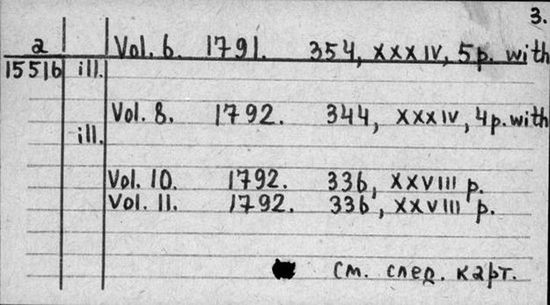 3.
a Vol. 6. 1791. 354, XXXIV, 5 p. with
15516 ill.
Vol. 8. 1792. 344, XXXIV, 4 p. with
ill.
Vol. 10. 1792. 336, XXVIII p.
Vol. 11. 1792. 336, XXVIII p.
См. след. карт.